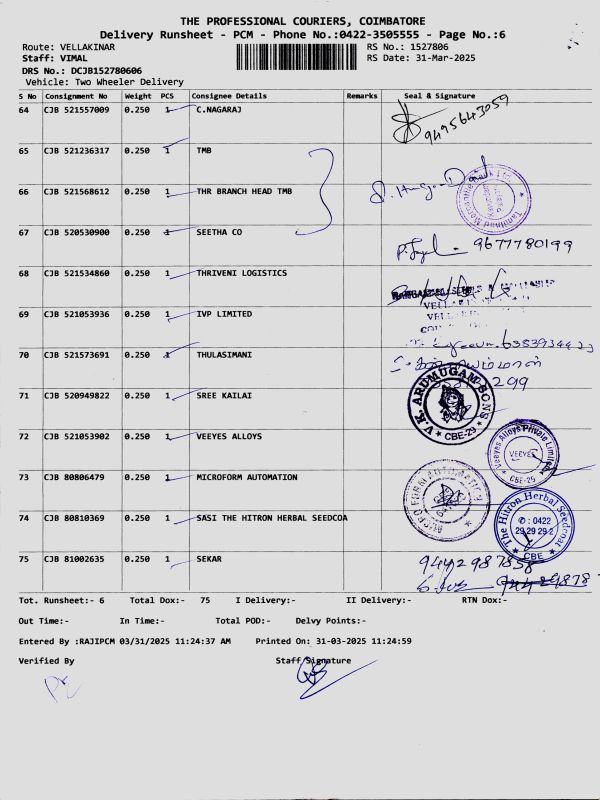 THE PROFESSIONAL COURIERS, COIMBATORE
Delivery Runsheet - PCM - Phone No.:0422-3505555 - Page No.:6
Route: VELLAKINAR RS No.: 1527806
Staff: VIMAL RS Date: 31-Mar-2025
DRS No.: DCJB152780606
Vehicle: Two Wheeler Delivery
S No Consignment No Weight PCS Consignee Details Remarks Seal & Signature
64 CJB 521557009 0.250 1 C.NAGARAJ
9495643059
65 CJB 521236317 0.250 1 TMB
66 CJB 521568612 0.250 1 THR BRANCH HEAD TMB
Tamilnad Mercantile Bank Ltd.
67 CJB 520530900 0.250 1 SEETHA CO
9677780199
68 CJB 521534860 0.250 1 THRIVENI LOGISTICS
69 CJB 521053936 0.250 1 IVP LIMITED
6383934423
70 CJB 521573691 0.250 1 THULASIMANI
299
71 CJB 520949822 0.250 1 SREE KAILAI
V.K. ARUMUGAM SONS
CBE-29
72 CJB 521053902 0.250 1 VEEYES ALLOYS
Veeyes Alloys Private Limited
VEEYES
CBE-25
73 CJB 80806479 0.250 1 MICROFORM AUTOMATION
MICRO FORM AUTOMATION
74 CJB 80810369 0.250 1 SASI THE HITRON HERBAL SEEDCOA
The Hitron Herbal Seedcoat
✆ : 0422
29 29 29 2
CBE
75 CJB 81002635 0.250 1 SEKAR
9442987858
Tot. Runsheet:- 6 Total Dox:- 75 I Delivery:- II Delivery:- RTN Dox:-
Out Time:- In Time:- Total POD:- Delvy Points:-
Entered By :RAJIPCM 03/31/2025 11:24:37 AM Printed On: 31-03-2025 11:24:59
Verified By Staff Signature